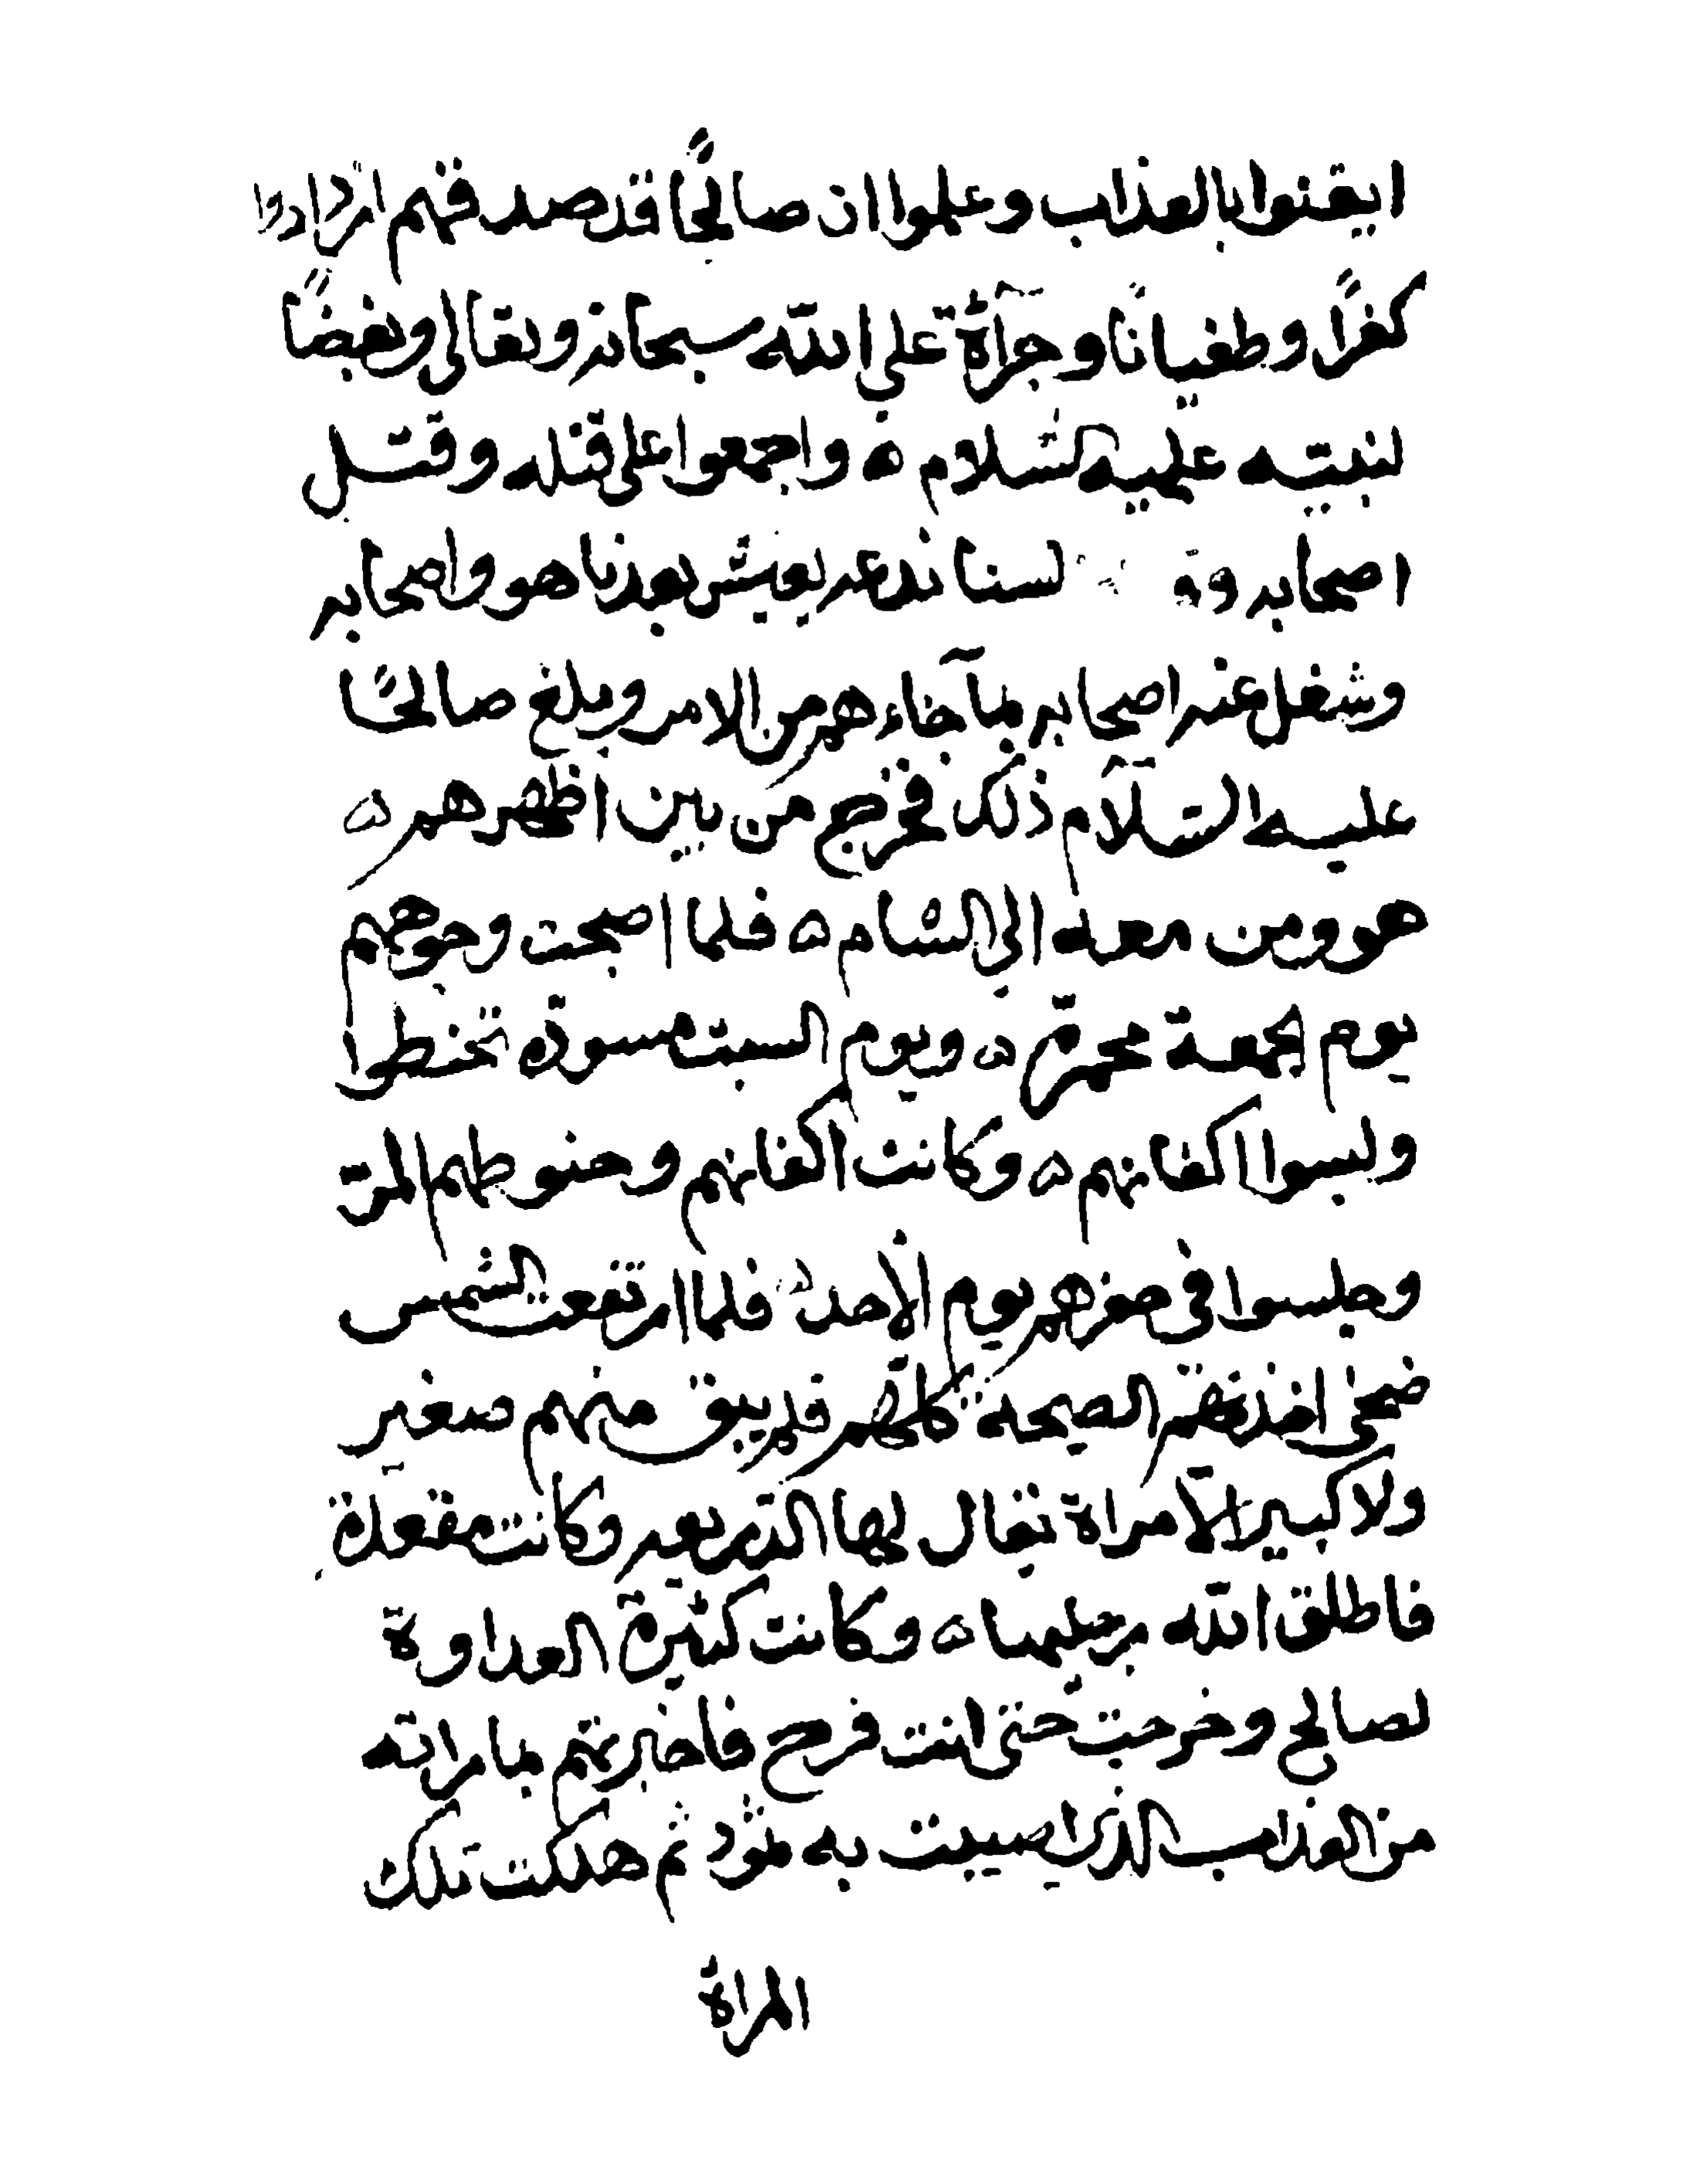 ايقنوا بالعذاب وعلموا ان صالحًا قد صدقهم ازدادوا
كفرًا وطغيانًا وجرآة علي الله سبحانه وتعالى وبغضًا
لنبيه عليه السلام ه واجمعوا على قتله وقتل
اصحابه لسنا ندعه يعيش بعدنا هو واصحابه
وشغل عنه اصحابه بمآ جاءهم من الامر وبلغ صالحًا
عليه السّلآم ذلك فخرج من بين اظهرهم ه
هو ومن معه الي الشام ه فلما اصبحت وجوههم
يوم الجمعة محمرة ه ويوم السبت مسودة تحنطوا
ولبسوا اكفانهم ه وكانت اكفانهم وحنوطهم المر
وجلسوا في حفرهم يوم الأحد ه فلما ارتفعت الشمس
ضحى اخذتهم الصيحة كلهم فلم يبق منهم صغير
ولا كبير الا امراة يقال لها الذريعه وكانت مقعدة
فاطلق الله رجليها ه وكانت كثيرة العداوة
لصالح وخرجت حتى اتت قرح فاخبرتهم بما راته
من العذاب الذي اصيبت به ثمود ثم هلكت تلك
المراة